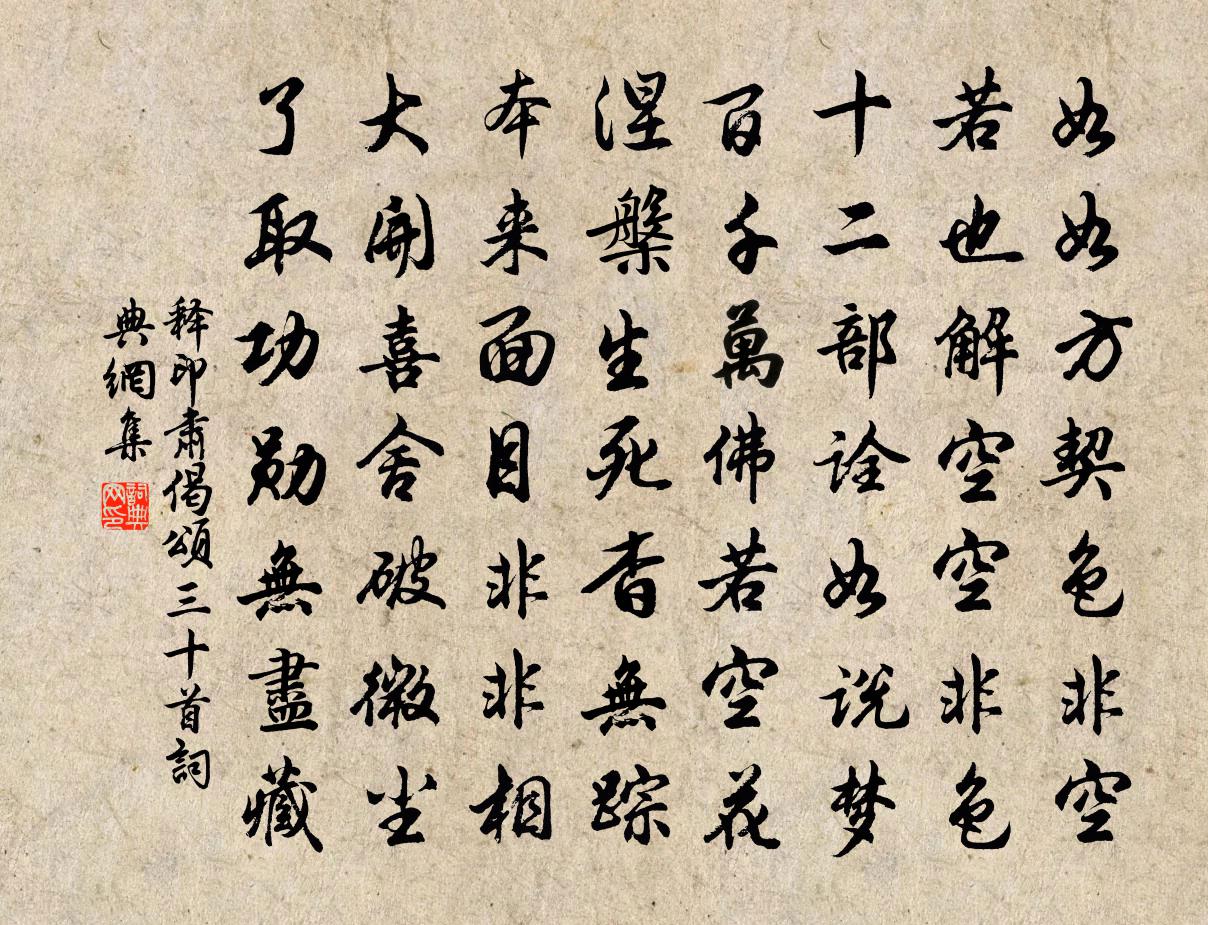 如如方契色非空
若也解空空非色
十二部詮如説梦
百千萬佛若空花
涅槃生死杳無踪
本来面目非非相
大開喜舍破微尘
了取功勋無盡藏
释印肃偈頌三十首詞
典網集
詞典网印